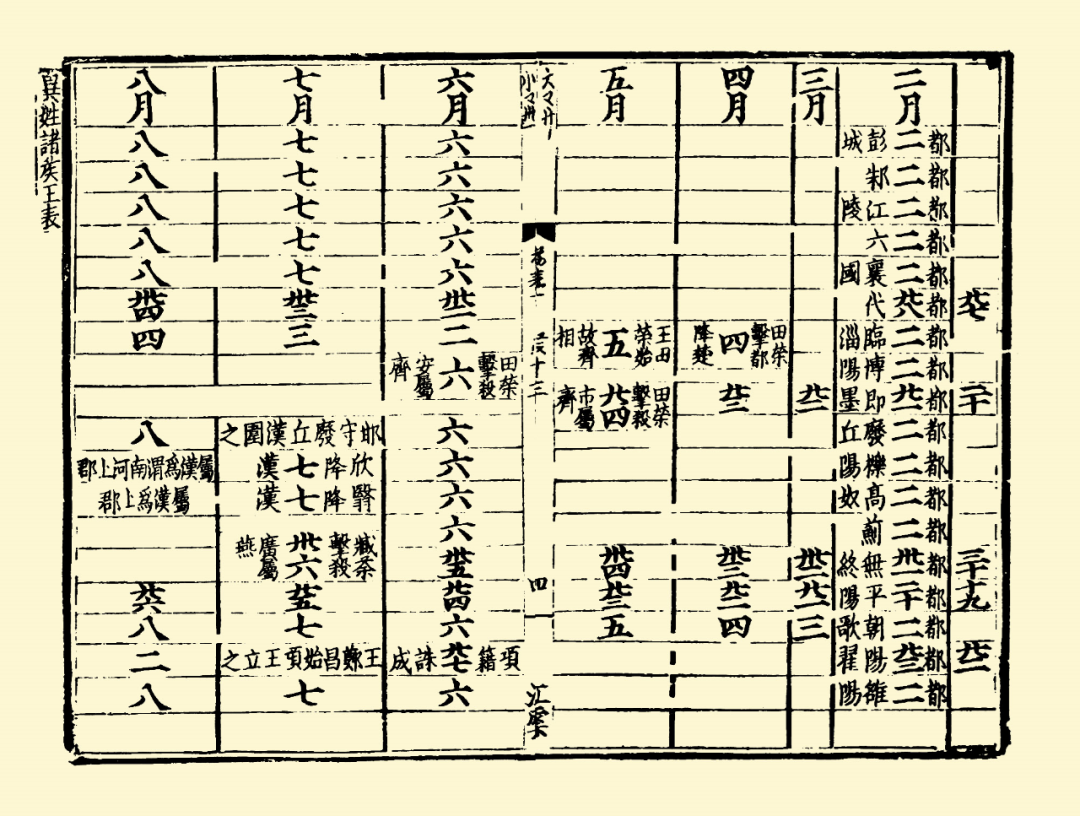 廿七
二十
三十
十九
廿二
二月
都二彭城
都二邾
都二江陵
都二六
都二襄國
都廿八代
都二臨淄
都二博陽
都廿一即墨
都二廢丘
都二櫟陽
都二高奴
都二薊
都卅一無終
都二十平陽
都二朝歌
都廿三陽翟
都二雒陽
三月
廿二
卅二
廿一
三
四月
田榮擊都四降楚
廿三
卅三
廿二
四
五月
王田榮始五故齊相
田榮擊殺廿四市屬齊
卅四
廿三
五
三百十三
四
六月
六
六
六
六
六
卅二
二
田榮擊殺六安屬齊
六
六
六
六
卅五
廿四
六
項籍廿七誅成
六
七月
七
七
七
七
七
卅三
三
邯守廢丘漢圍之
欣降七漢
翳降七漢
臧荼擊殺卅六廣屬燕
廿五
七
王鄭昌始項王立之
七
八月
八
八
八
八
八
卅四
四
八
屬漢爲渭南河上郡
屬漢爲上郡
廿六
八
二
八
異姓諸矦王表